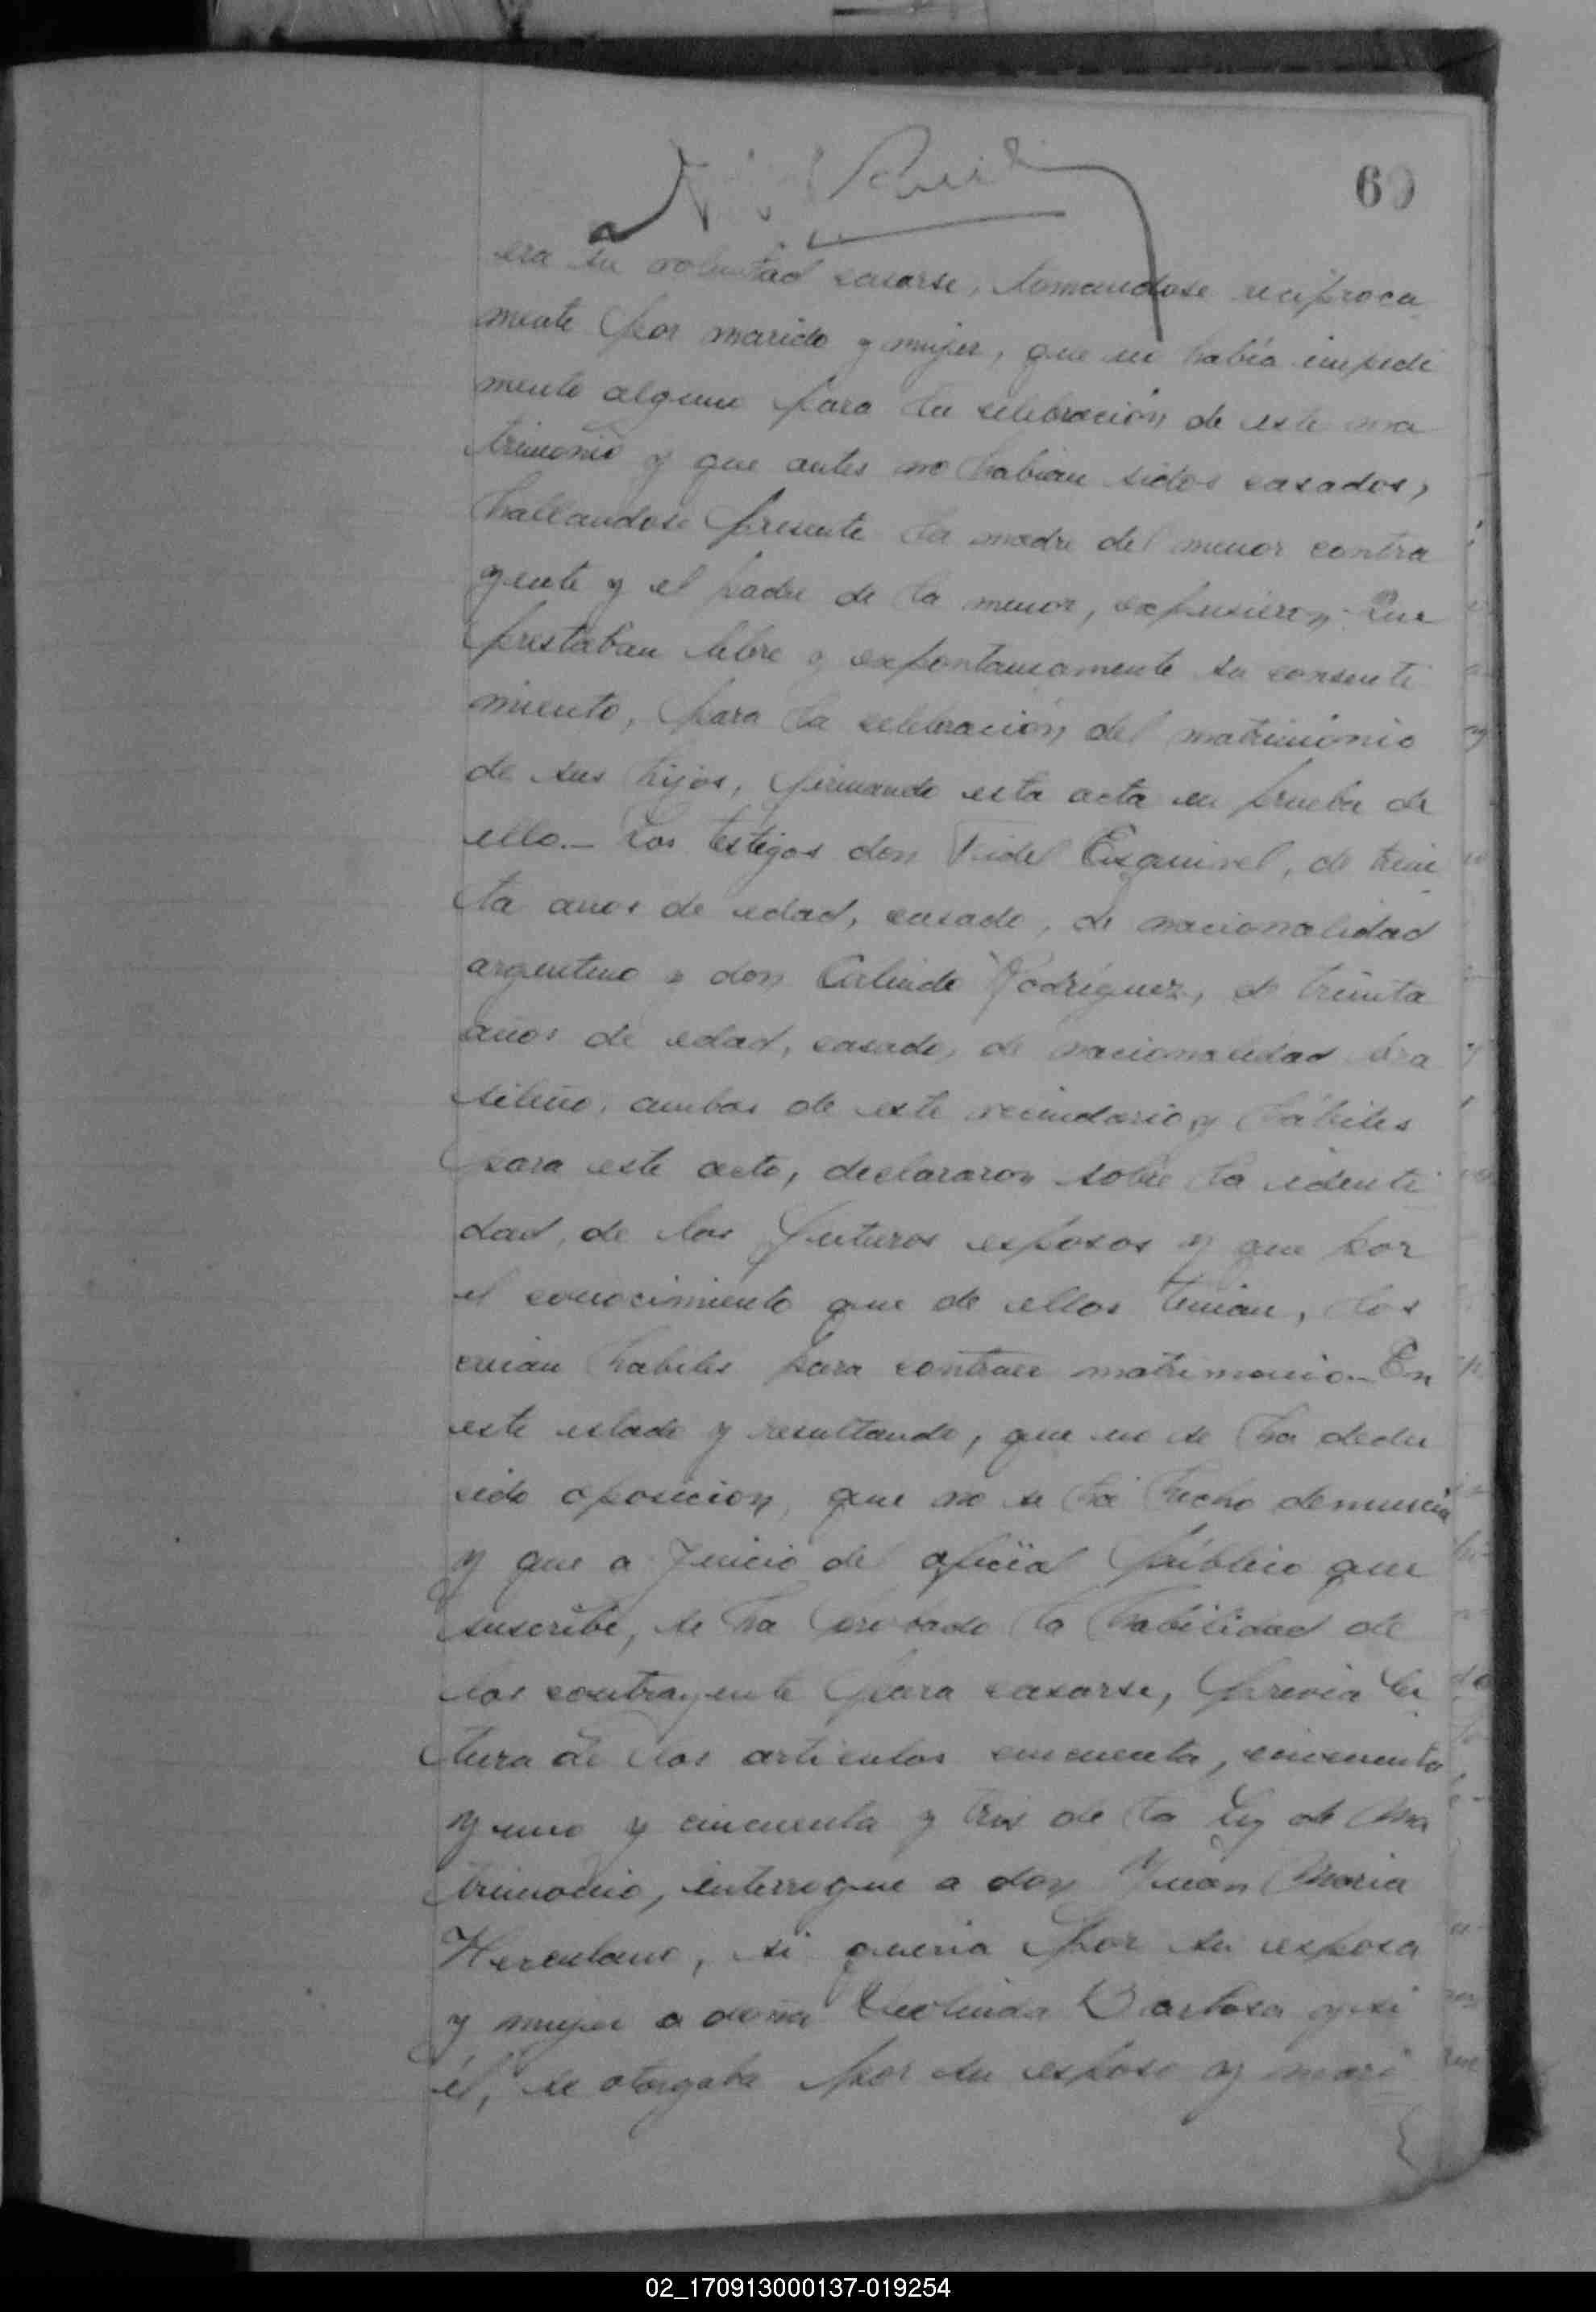 60
era su voluntad casarse, tomandose reciproca
mente por marido y mujer, que no había impedi
mento alguno para la celebración de este ma
trimonio y que antes no habian sidos casados,
hallandose presente la madre del menor contra
yente y el padre de la menor, expusieron: Que
prestaban libre y expontaneamente su consenti
miento, para la celebración del matrimonio
de sus hijos, firmando esta acta en prueba de
ello.- Los testigos don Fidel Esquivel, de trein
ta años de edad, casado, de nacionalidad
argentino y don Rodriguez, de treinta
años de edad, casado, de nacionalidad bra
sileño, ambos de este vecindario y hábiles
para este acto, declararon sobre la identi
dad de los futuros esposos y que por
el conocimiento que de ellos tenian, los
creian habiles para contraer matrimonio.- En
este estado y resultando, que no se ha dedu
cido oposicion, que no se ha hecho denuncia
y que a juicio del oficial público que
suscribe, se ha probado la habilidad de
los contrayente para casarse, previa lec
tura de los articulos cincuenta, cincuenta
y uno y cincuenta y tres de la Ley de Ma
trimonio, interrogue a don Juan Maria
Herculano, si queria por su esposa
y mujer a doña Barbosa y si
él, se otorgaba por su esposo y mari
02_170913000137-019254